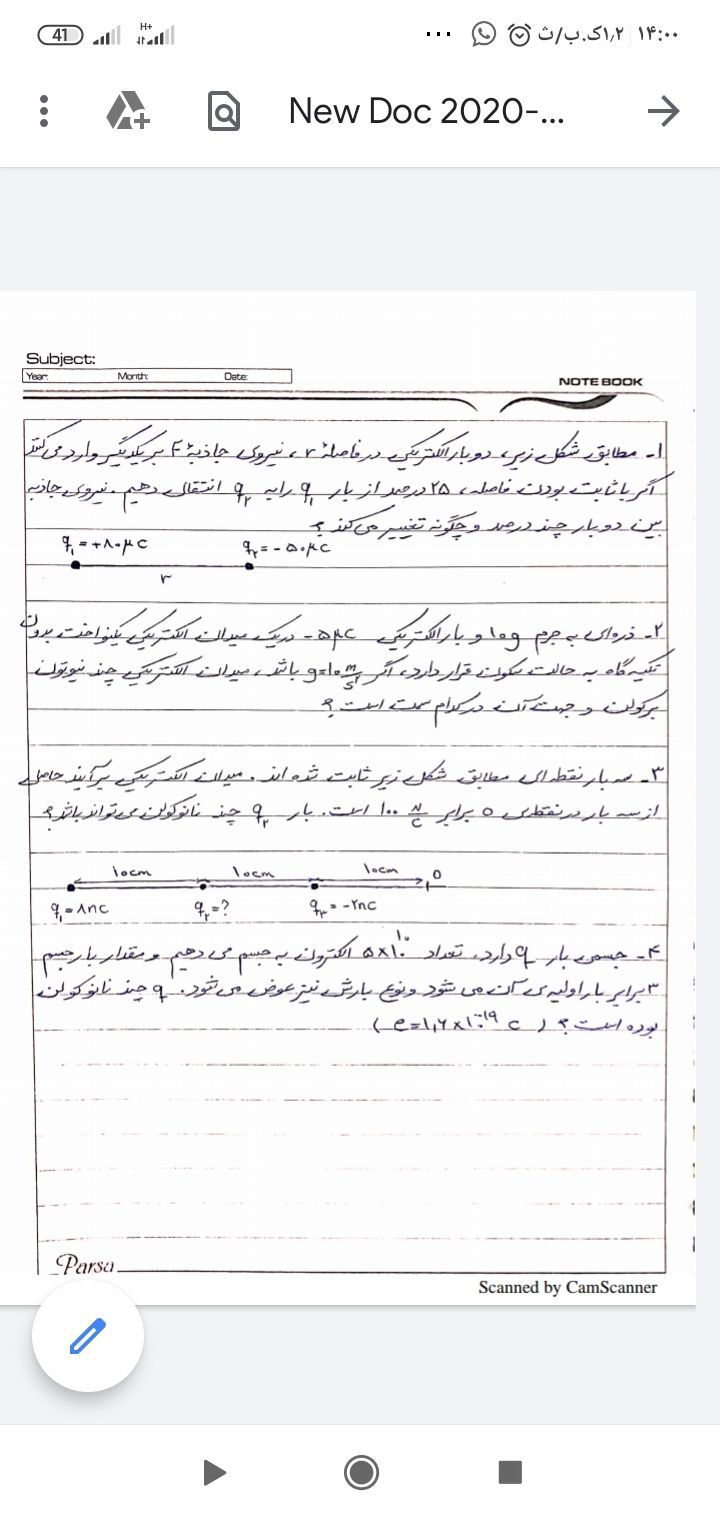 41 H+ ... ۱٫۲ک.ب/ث ۱۴:۰۰
New Doc 2020-...
Subject:
Year: Month: Date:
NOTE BOOK
۱- مطابق شکل زیر، دو بار الکتریکی در فاصلهٔ r، نیروی جاذبهٔ F بر یکدیگر وارد می‌کنند
اگر با ثابت بودن فاصله، ۲۵ درصد از بار q₁ را به q₂ انتقال دهیم. نیروی جاذبه
بین دو بار چند درصد و چگونه تغییر می‌کند؟
q₁=+۸۰μC q₂=-۵۰μC
r
۲- ذره‌ای به جرم ۱۰g و بار الکتریکی -۵μC در یک میدان الکتریکی یکنواخت بدون
تکیه‌گاه به حالت سکون قرار دارد، اگر g=۱۰ m/s² باشد، میدان الکتریکی چند نیوتون
بر کولن و جهت آن در کدام سمت است؟
۳- سه بار نقطه‌ای مطابق شکل زیر ثابت شده‌اند. میدان الکتریکی برآیند حاصل
از سه بار در نقطه‌ی O برابر ۱۰۰ N/C است. بار q₂ چند نانوکولن می‌تواند باشد؟
۱۰cm ۱۰cm ۱۰cm O
q₁=۸nC q₂=? q₃=-۲nC
۴- جسمی بار q دارد، تعداد ۵×۱۰¹⁰ الکترون به جسم می‌دهیم و مقدار بار جسم
۳ برابر بار اولیه‌ی آن می‌شود و نوع بارش نیز عوض می‌شود. q چند نانوکولن
بوده است؟ (e=۱٫۶×۱۰⁻¹⁹ C)
Parsa
Scanned by CamScanner